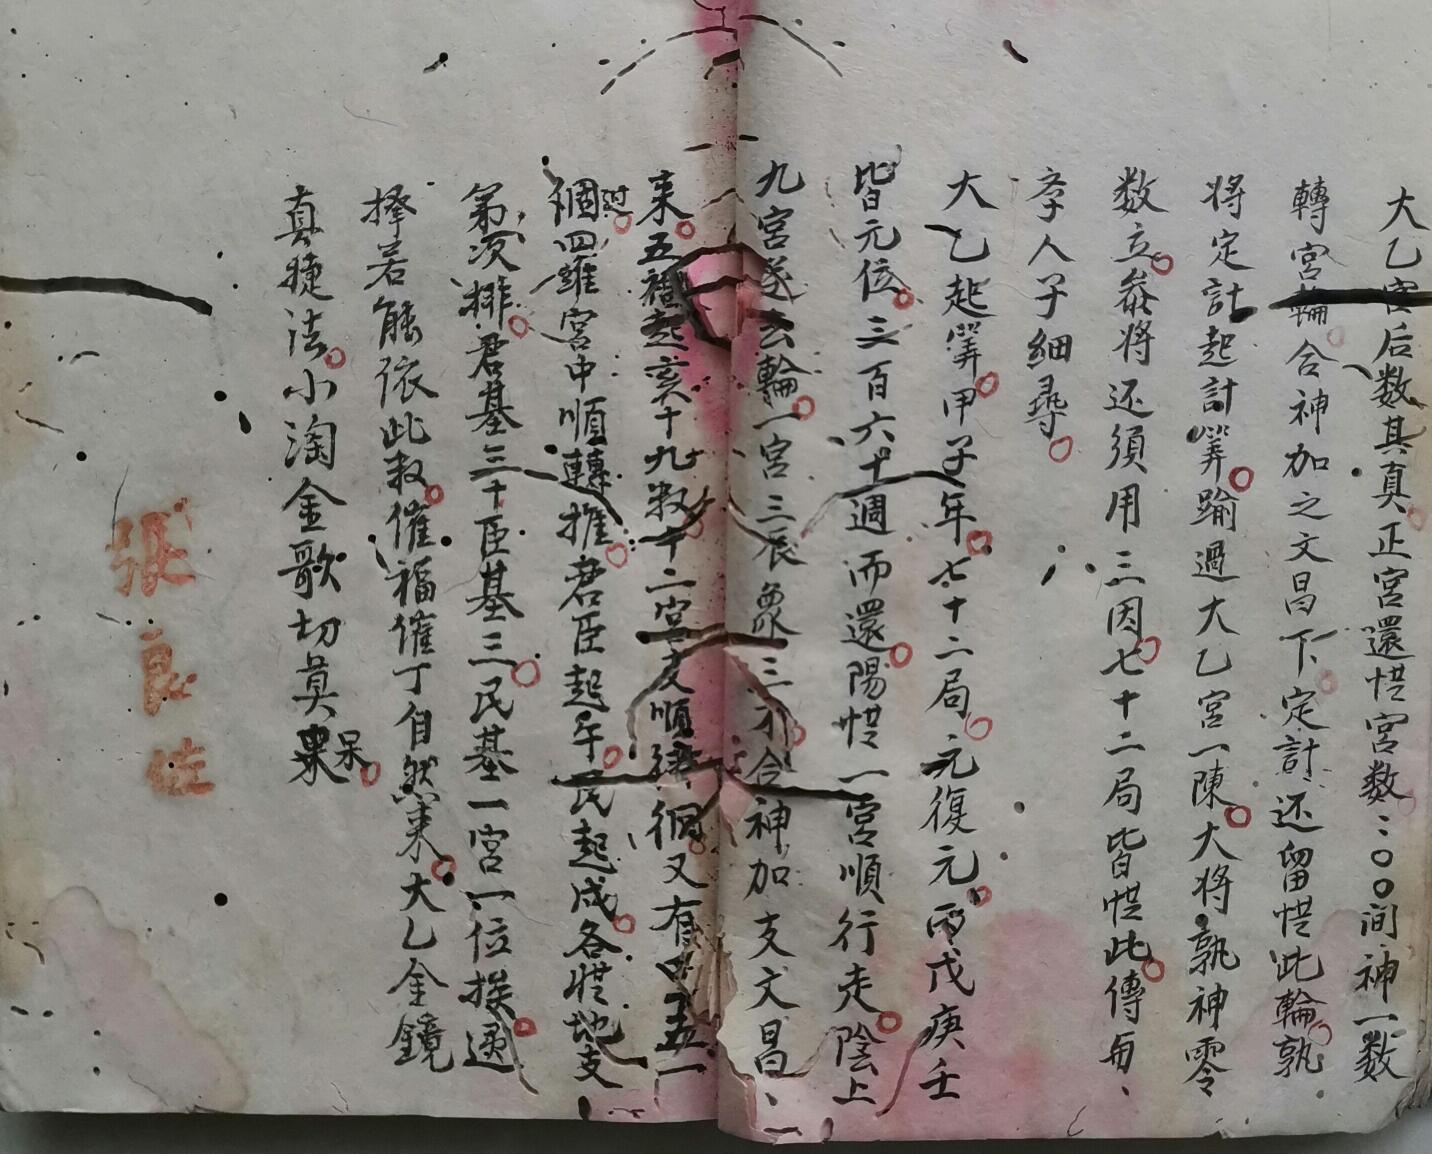 大乙宮后数其真正宮還惜宮数：〇〇间神一数
轉宮輪合神加之文昌下定計还留惜此輪孰
将定計起計筭踰過大乙宮一陳大将孰神零
数立叅将还須用三因七十二局皆惜此傳毎
孝人子細尋
大乙起筭甲子年七十二局元復元丙戊庚壬
皆元位三百六十週而還陽惜一宮順行走陰上
九宮逐去輪一宮三辰衆三合神加支文昌
来五福起亥十九数十二宮支順徊又有四五一
個四維宮中順轉推君臣起午民起戌各惜地支
第次排君基三十臣基三民基一宮一位挨過
擇若能依此数催福催丁自然来大乙金鏡
真捷法小淘金歌切莫呆
張良佐